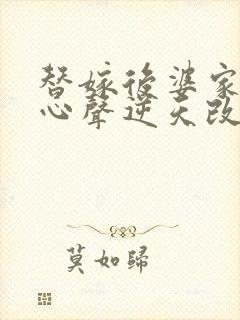 替嫁後婆家
心聲逆天改
莫如歸